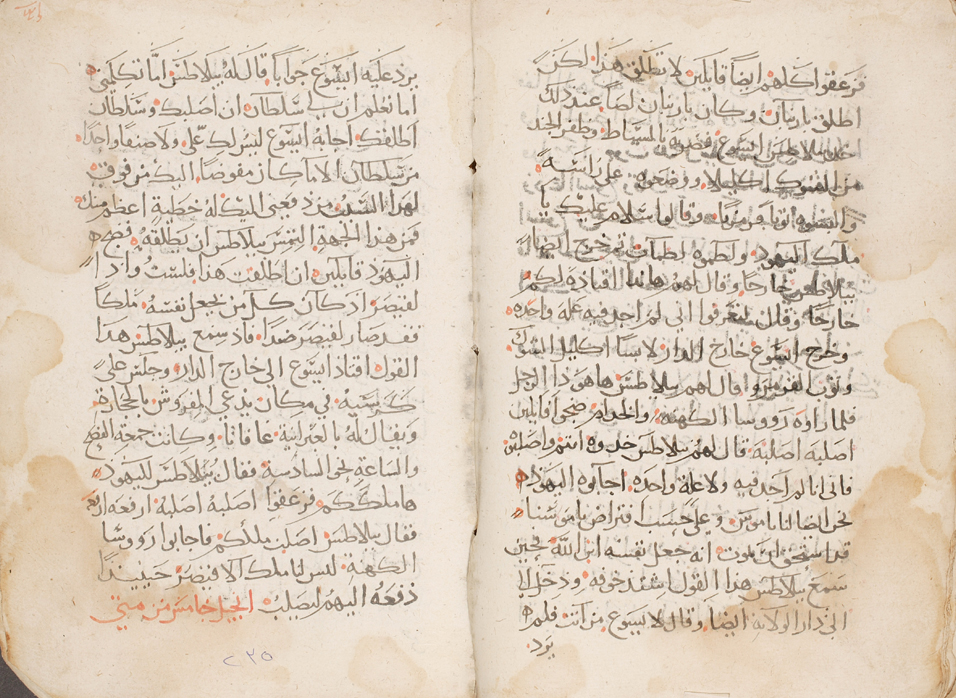 فزعقوا كلهم ايضاً قايلين لا تطلق هذا لكن
اطلق باربان وكان باربان لصاً عند ذلك
اخذ بيلاطس ايسوع فضربه بالسياط وظفر الجند
من الشوك اكليلا ووضعوه على راسه
والبسوه ثوبا فرفريا وقالوا سلام عليك يا
ملك اليهود ولطموه لطمات ثم خرج ايضا
بيلاطس خارجا وقال لهم هاندا اقتاده لكم
خارجا وقال لتعرفوا انى لم اجد فيه علة واحده
وخرج ايسوع خارج الدار لابسا اكليل الشوك
وثوب الفرفير وقال لهم بيلاطس هاهو ذا الرجل
فلما راوه رووسا الكهنه والخدام ضجوا قايلين
اصلبه اصلبه قال لهم بيلاطس خدوه انتم واصلبوه
فانى انا لم اجد فيه ولا علة واحده اجابوه اليهود
نحن ايضا لنا ناموس وعلى حسب افتراض ناموسنا
قد استحق ان يموت انه جعل نفسه ابن الله فحين
سمع بيلاطس هدا القول اشتد خوفه ودخل
الى دار الولايه ايضا وقال لايسوع من انت فلم
يرد
يرد عليه ايسوع جوابا قال له بيلاطس اما تكلمنى
اما تعلم ان لي سلطان ان اصلبك وسلطان
اطلقك اجابه ايسوع ليس لك علي ولا صنفا واحدا
من سلطان الا ما كان مفوضا اليك من فوق
لهدا السبب من دفعنى اليك له خطية اعظم منك
فمن هدا الجهة التمس بيلاطس ان يطلقه فضج
اليهود قايلين ان اطلقت هدا فلست وادا
لقيصر اذ كان كل من يجعل نفسه ملكا
فقد صار لقيصر ضدا فاذ سمع بيلاطس هدا
القول اقتاد ايسوع الى خارج الدار وجلس على
كرسيه في مكان يدعى المفروش بالحجارة
ويقال له بالعبرانية غافاثا وكانت جمعة الفصح
والساعة نحو السادسة فقال بيلاطس لليهود
ها ملككم فزعقوا اصلبه اصلبه ارفعه ارفعه
فقال بيلاطس اصلب ملككم فاجابوا رووسا
الكهنة ليس لنا ملك الا قيصر حينيدا
دفعه اليهم ليصلب الانجيل خامس من متي
٢٣٥